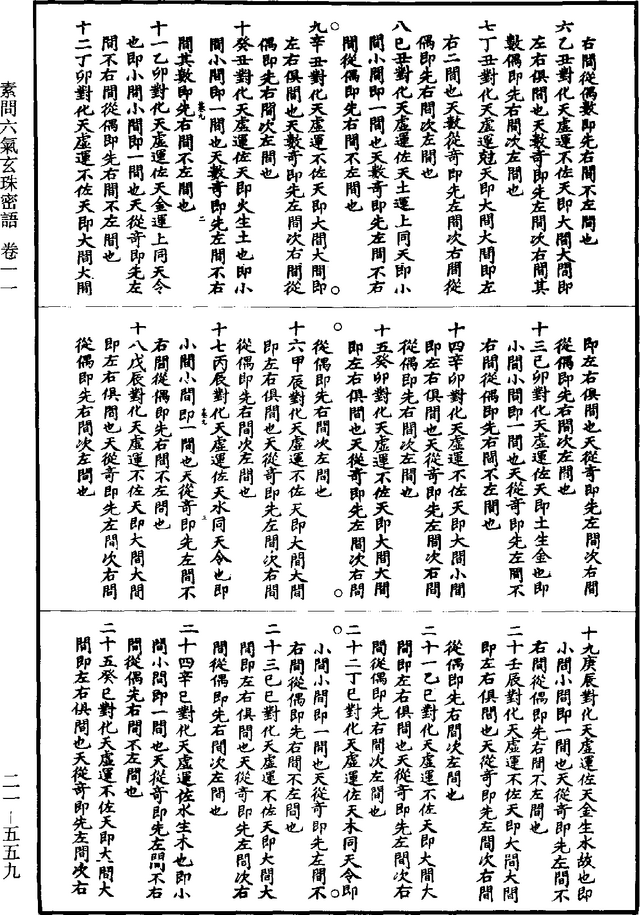 右間從偶數即先右間不左間也
六乙丑對化天虛運不佐天即大間大間即
左右俱間也天數奇即先左間次右間其
數偶即先右間次左間也
七丁丑對化天虛運尅天即大間大間即左
右二間也天數從奇即先左間次右間從
偶即先右間次左間也
八己丑對化天虛運佐天土運上同天即小
間小間即一間也天數奇即先左間不右
間從偶即先右間不左間也
九辛丑對化天虛運不佐天即大間大間即
左右俱間也天數奇即先左間次右間從
偶即先右間次左間也
十癸丑對化天虛運佐天即火生土也即小
間小間即一間也天數奇即先左間不右
間其數即先右間不左間也
十一乙卯對化天虛運佐天金運上同天令
也即小間小間即一間也天從奇即先左
間不右間從偶即先右間不左間也
十二丁卯對化天虛運不佐天即大間大間
即左右俱間也天從奇即先左間次右間
從偶即先右間次左間也
十三己卯對化天虛運佐天即土生金也即
小間小間即一間也天從奇即先左間不
右間從偶即先右間不左間也
十四辛卯對化天虛運不佐天即大間小間
即左右俱間也天從奇即先左間次右間
從偶即先右間次左間也
十五癸卯對化天虛運不佐天即大間大間
即左右俱間也天從奇即先左間次右間
從偶即先右間次左間也
十六甲辰對化天虛運不佐天即大間大間
即左右俱間也天從奇即先左間次右間
從偶即先右間次左間也
十七丙辰對化天虛運佐天水同天令也即
小間小間即一間也天從奇即先左間不
右間從偶即先右間不左間也
十八戊辰對化天虛運不佐天即大間大間
即左右俱間也天從奇即先左間次右間
從偶即先右間次左間也
十九庚辰對化天虛運佐天金生水故也即
小間小間即一間也天從奇即先左間不
右間從偶即先右間不左間也
二十壬辰對化天虛運不佐天即大間大間
即左右俱間也天從奇即先左間次右間
從偶即先右間次左間也
二十一乙巳對化天虛運不佐天即大間大
間即左右俱間也天從奇即先左間次右
間從偶即先右間次左間也
二十二丁巳對化天虛運佐天木同天令即
小間小間即一間也天從奇即先左間不
右間從偶即先右間不左間也
二十三己巳對化天虛運不佐天即大間大
間即左右俱間也天從奇即先左間次右
間從偶即先右間次左間也
二十四辛巳對化天虛運佐水生木也即小
間小間即一間也天從奇即先左間不右
間從偶先右間不左間也
二十五癸巳對化天虛運不佐天即大間大
間即左右俱間也天從奇即先左間次右
素問六氣玄珠密語 卷一一
二一－五五九